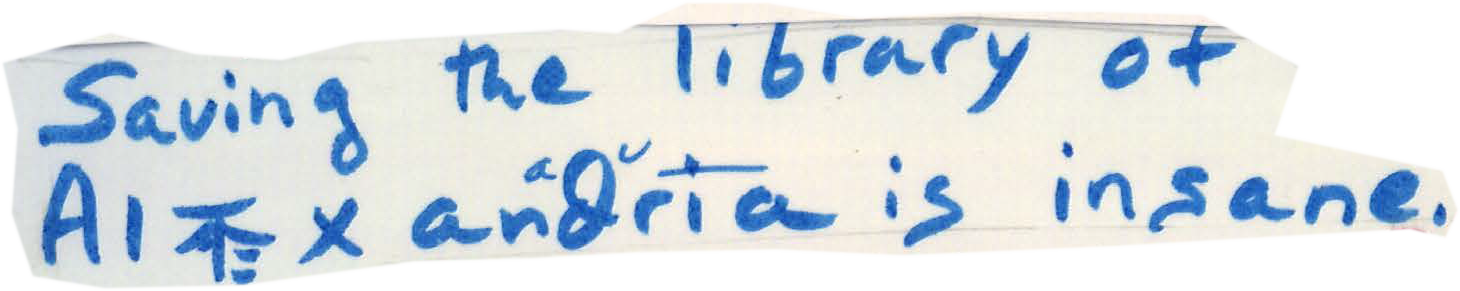 Saving the library of
Alexandria is insane.